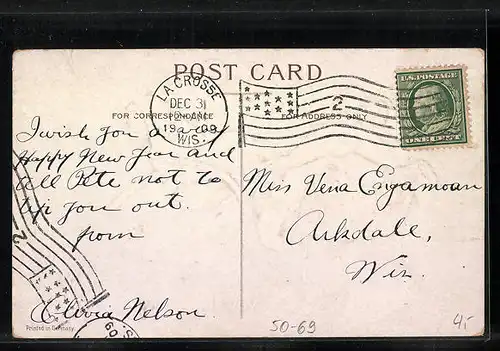 POST CARD
FOR CORRESPONDENCE
FOR ADDRESS ONLY
LA CROSSE
DEC 31
1909
WIS.
2
U.S. POSTAGE
ONE CENT
I wish you a very
Happy New Year and
all Pete not to
tip you out.
from
Olivia Nelson.
Miss Vena Engamoan
Arkdale,
Wis.
2
Printed in Germany
50-69
4,-